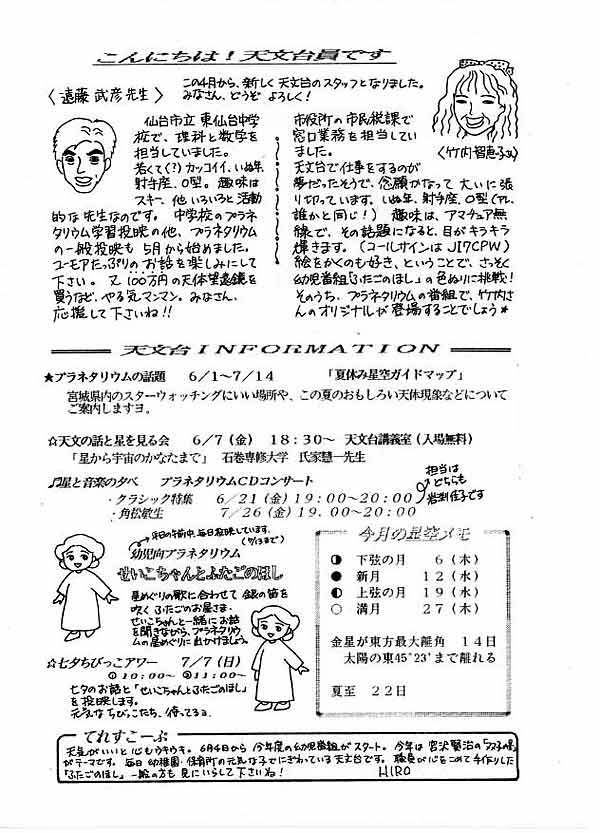 こんにちは！天文台員です
この4月から、新しく天文台のスタッフとなりました。
みなさん、どうぞ よろしく！
〈遠藤 武彦先生〉
仙台市立 東仙台中学
校で、理科と数学を
担当していました。
若くて(？)カッコイイ、いぬ年、
射手座、O型。趣味は
スキー、他いろいろと活動
的な先生なのです。中学校のプラネ
タリウム学習投映の他、プラネタリウム
の一般投映も5月から始めました。
ユーモアたっぷりのお話を楽しみにして
下さい。又100万円の天体望遠鏡を
買うなど、やる気マンマン。みなさん、
応援して下さいね!!
〈竹内智恵子さん〉
市役所の市民税課で
窓口業務を担当してい
ました。
天文台で仕事をするのが
夢だったそうで、念願かなって大いに張
り切っています。いぬ年、射手座、O型(アレ、
誰かと同じ！) 趣味は、アマチュア無
線で、その話題になると、目がキラキラ
輝きます。(コールサインは JI7CPW)
絵をかくのも好き、ということで、さっそく
幼児番組「ふたごのほし」の色ぬりに挑戦！
そのうち、プラネタリウムの番組で、竹内さ
んのオリジナルが登場することでしょう★
天文台INFORMATION
★プラネタリウムの話題 6/1～7/14 「夏休み星空ガイドマップ」
宮城県内のスターウォッチングにいい場所や、この夏のおもしろい天体現象などについて
ご案内しますヨ。
☆天文の話と星を見る会 6/7(金) 18:30～ 天文台講義室(入場無料)
「星から宇宙のかなたまで」 石巻専修大学 氏家慧一先生
♫星と音楽の夕べ プラネタリウムCDコンサート
・クラシック特集 6/21(金)19:00～20:00
・角松敏生 7/26(金)19:00～20:00
担当は
どちらも
岩渕佳子です
平日の午前中、毎日投映しています。
(7/13まで)
幼児向プラネタリウム
せいこちゃんとふたごのほし
星めぐりの歌に合わせて 銀の笛を
吹く ふたごのお星さま.
せいこちゃんと一緒にお話
を聞きながら、プラネタリウ
ムの星めぐりに出かけましょう。
☆七夕ちびっこアワー 7/7(日)
①10:00～ ②11:00～
七夕のお話と「せいこちゃんとふたごのほし」
を投映します。
元気な ちびっこたち、待ってるョ
今月の星空メモ
◑ 下弦の月 6(木)
● 新月 12(水)
◐ 上弦の月 19(水)
○ 満月 27(木)
金星が東方最大離角 14日
太陽の東45°23′まで離れる
夏至 22日
てれすこーぷ
天気がいいと心もウキウキ。6月4日から 今年度の幼児番組がスタート。今年は 宮沢賢治の
がテーマです。毎日 幼稚園・保育所の元気な子でにぎわっている天文台です。職員が心をこめて手作りした
「ふたごのほし」一般の方も 見にいらして下さいね！ HIRO